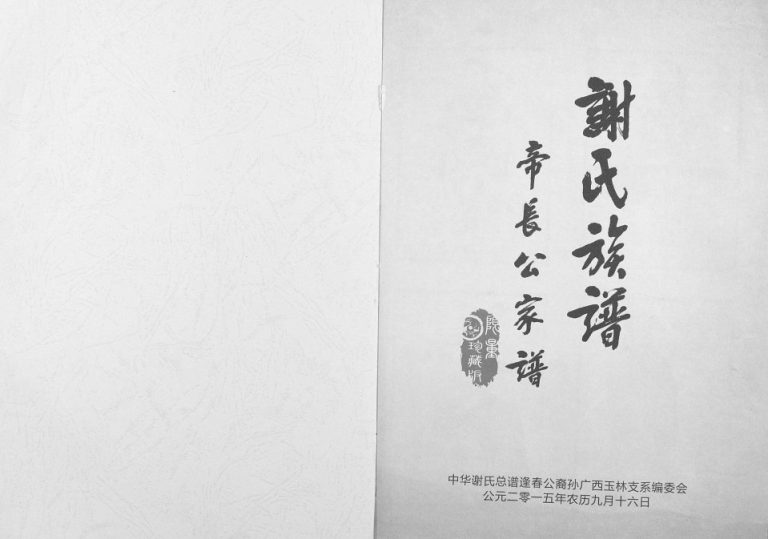 謝氏族譜
帝長公家譜
限量
珍藏版
中华谢氏总谱逢春公裔孙广西玉林支系编委会
公元二零一五年农历九月十六日